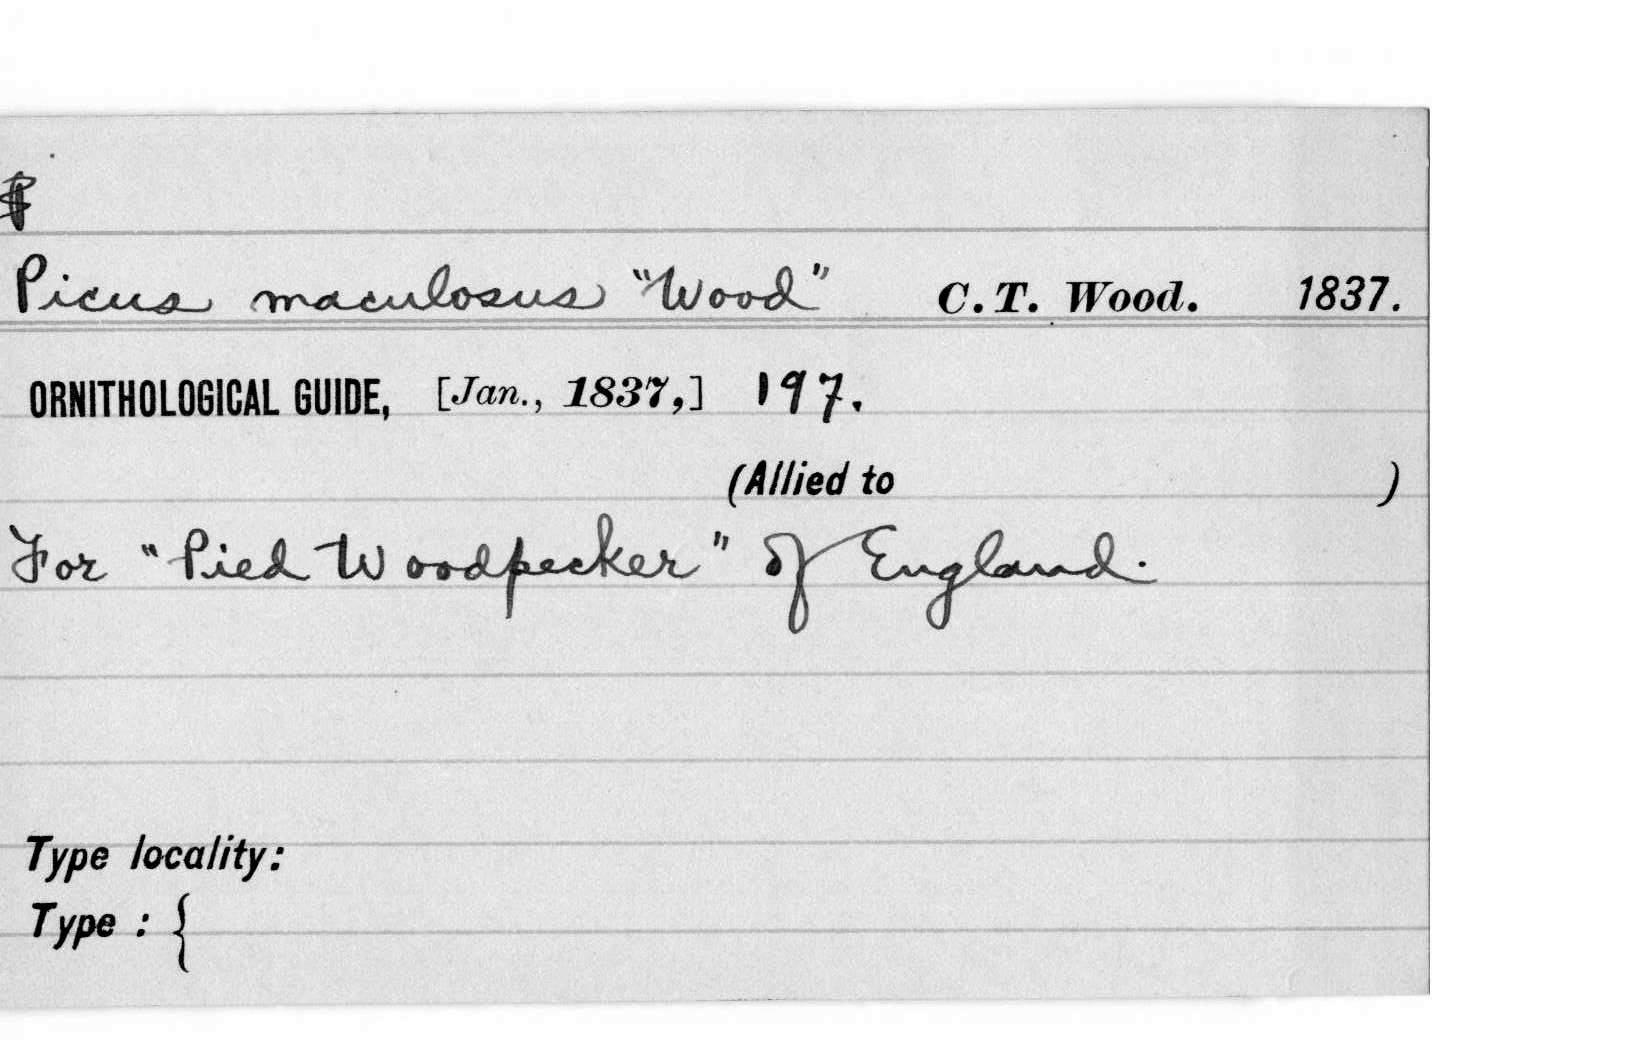 Picus maculosus "Wood" C. T. Wood. 1837.
ORNITHOLOGICAL GUIDE, [Jan., 1837,] 197.
(Allied to )
For "Pied Woodpecker" of England.
Type locality:
Type : {